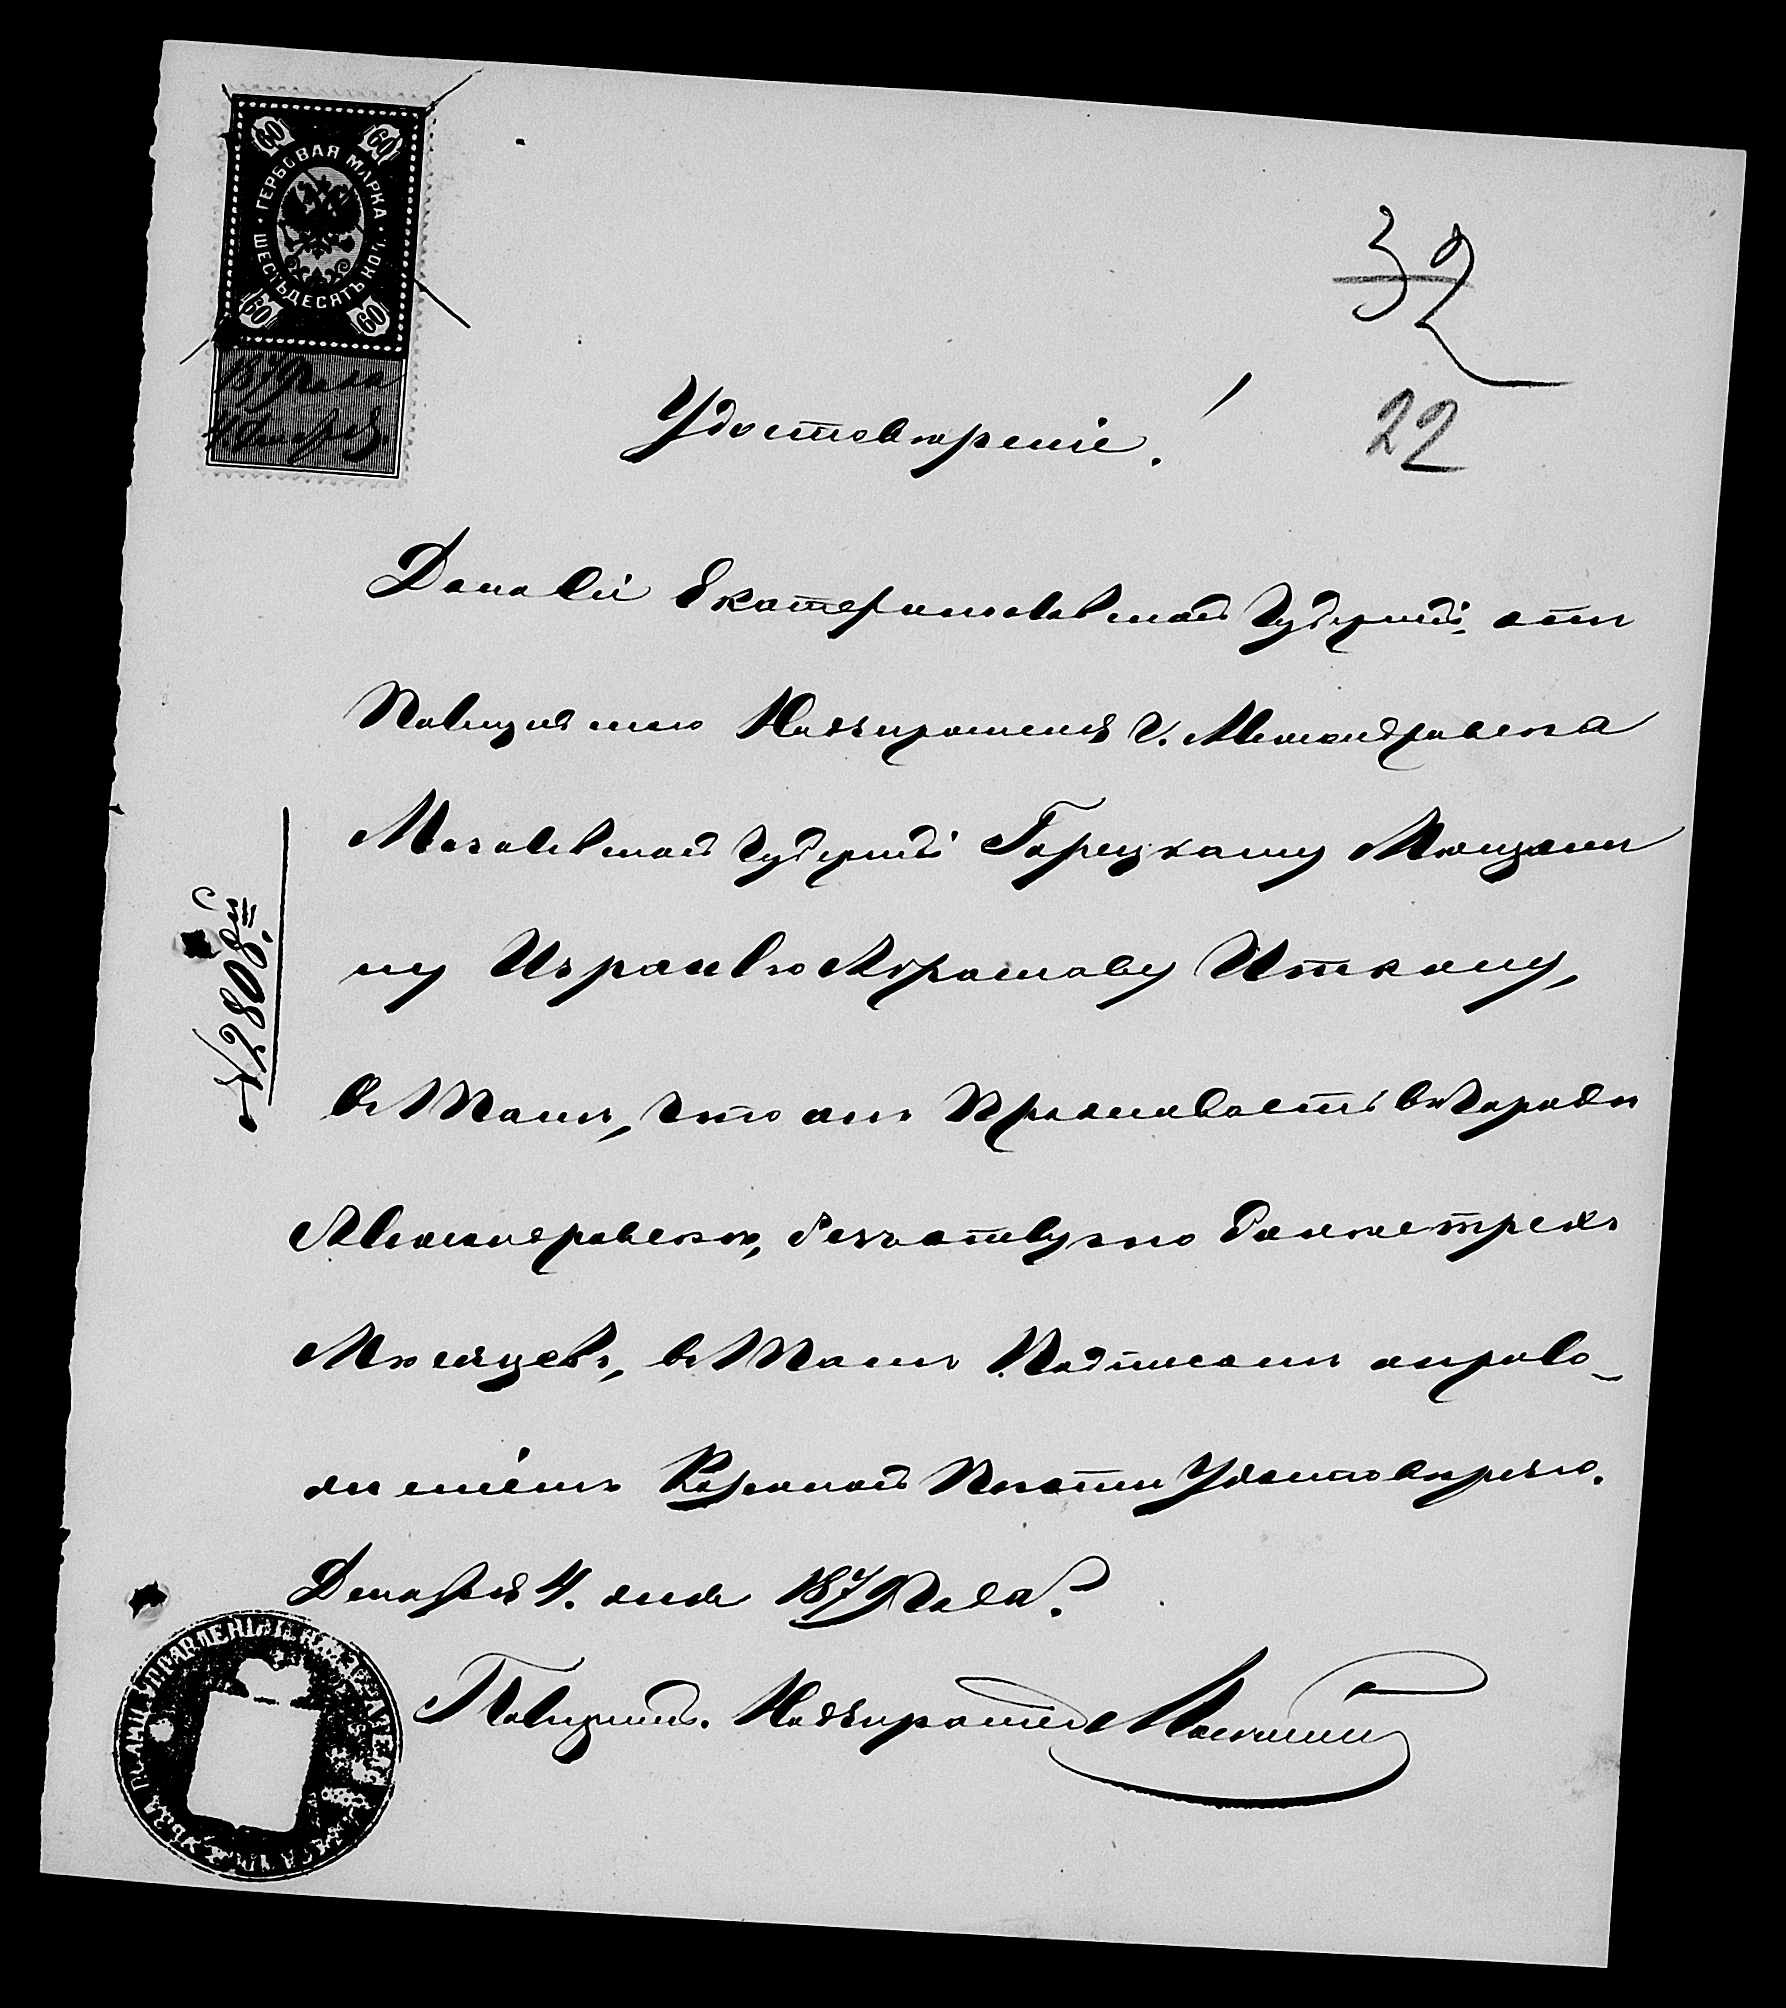 60 60
ГЕРБОВАЯ МАРКА
ШЕСТЬДЕСЯТЪ КОП.
60 60
1879 года
32
22
Удостовѣреніе.
Дано сіе Екатеринославской Губерніи, отъ
Полицейскаго Надзирателя г. Александровска
Могилевской Губерніи Горецкому Мѣщани
ну Израилю Абрамову Иткину,
въ томъ, что онъ проживаетъ въ городѣ
Александровскѣ, безотлучно болѣе трехъ
Мѣсяцевъ, въ томъ подписомъ и прило-
женіемъ Казенной Печати удостовѣряю.
Декабря 4. дня 1879 года.
Полицейс. Надзиратель
№ 2808й